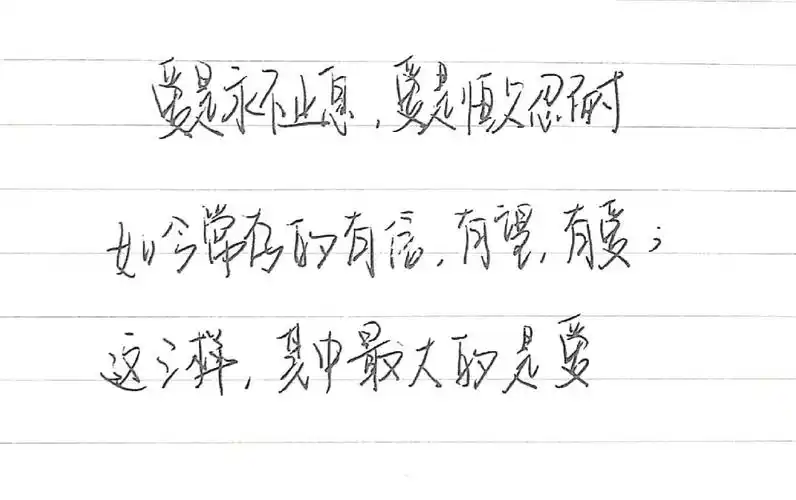 爱是永不止息，爱是恒久忍耐
如今常存的有信，有望，有爱；
这三样，其中最大的是爱